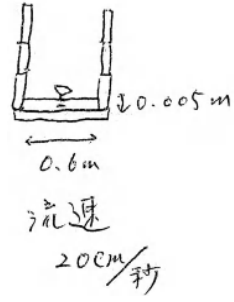 0.005m
0.6m
流速
20cm/秒